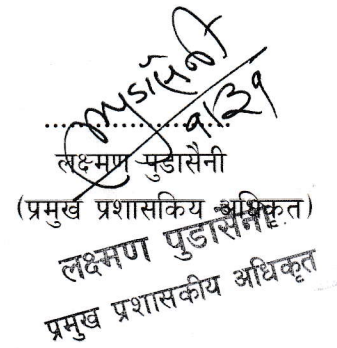 पुडासैनी
९/२९
....................
लक्ष्मण पुडासैनी
(प्रमुख प्रशासकिय अधिकृत)
लक्ष्मण पुडासैनी
प्रमुख प्रशासकीय अधिकृत